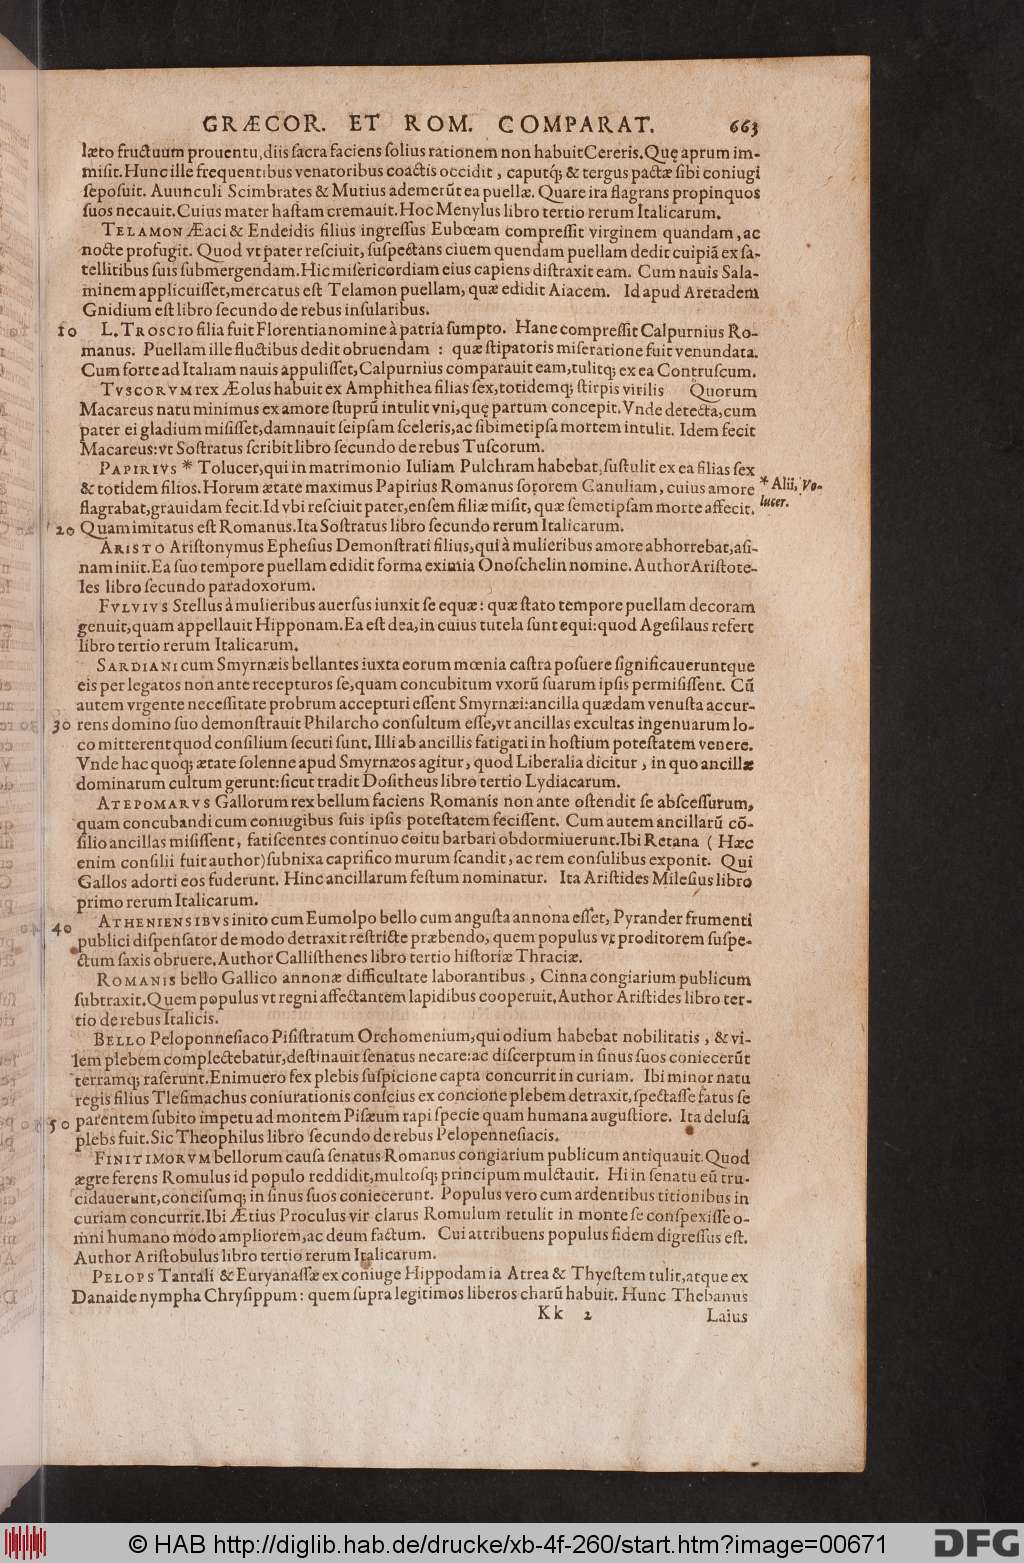 GRÆCOR. ET ROM. COMPARAT. 663
læto fructuum prouentu, diis sacra faciens solius rationem non habuit Cereris. Quę aprum im-
misit. Hunc ille frequentibus venatoribus coactis occidit, caputq; & tergus pactæ sibi coniugi
seposuit. Auunculi Scimbrates & Mutius ademerūt ea puellæ. Quare ira flagrans propinquos
suos necauit. Cuius mater hastam cremauit. Hoc Menylus libro tertio rerum Italicarum.
TELAMON Æaci & Endeidis filius ingressus Eubœam compressit virginem quandam, ac
nocte profugit. Quod vt pater resciuit, suspectans ciuem quendam puellam dedit cuipiā ex sa-
tellitibus suis submergendam. Hic misericordiam eius capiens distraxit eam. Cum nauis Sala-
minem applicuisset, mercatus est Telamon puellam, quæ edidit Aiacem. Id apud Aretadem
Gnidium est libro secundo de rebus insularibus.
10 L. TROSCIO filia fuit Florentia nomine à patria sumpto. Hanc compressit Calpurnius Ro-
manus. Puellam ille fluctibus dedit obruendam : quæ stipatoris miseratione fuit venundata.
Cum forte ad Italiam nauis appulisset, Calpurnius comparauit eam, tulitq; ex ea Contruscum.
TVSCORVM rex Æolus habuit ex Amphithea filias sex, totidemq; stirpis virilis Quorum
Macareus natu minimus ex amore stuprū intulit vni, quę partum concepit. Vnde detecta, cum
pater ei gladium misisset, damnauit seipsam sceleris, ac sibimetipsa mortem intulit. Idem fecit
Macareus: vt Sostratus scribit libro secundo de rebus Tuscorum.
PAPIRIVS * Tolucer, qui in matrimonio Iuliam Pulchram habebat, sustulit ex ea filias sex
& totidem filios. Horum ætate maximus Papirius Romanus sororem Canuliam, cuius amore
* Alii, Vo-
lucer.
flagrabat, grauidam fecit. Id vbi resciuit pater, ensem filiæ misit, quæ semetipsam morte affecit.
20 Quam imitatus est Romanus. Ita Sostratus libro secundo rerum Italicarum.
ARISTO Aristonymus Ephesius Demonstrati filius, qui à mulieribus amore abhorrebat, asi-
nam iniit. Ea suo tempore puellam edidit forma eximia Onoschelin nomine. Author Aristote-
les libro secundo paradoxorum.
FVLVIVS Stellus à mulieribus auersus iunxit se equæ: quæ stato tempore puellam decoram
genuit, quam appellauit Hipponam. Ea est dea, in cuius tutela sunt equi: quod Agesilaus refert
libro tertio rerum Italicarum.
SARDIANI cum Smyrnæis bellantes iuxta eorum mœnia castra posuere significaueruntque
eis per legatos non ante recepturos se, quam concubitum vxorū suarum ipsis permisissent. Cū
autem vrgente necessitate probrum accepturi essent Smyrnæi: ancilla quædam venusta accur-
30 rens domino suo demonstrauit Philarcho consultum esse, vt ancillas excultas ingenuarum lo-
co mitterent quod consilium secuti sunt. Illi ab ancillis fatigati in hostium potestatem venere.
Vnde hac quoq; ætate solenne apud Smyrnæos agitur, quod Liberalia dicitur, in quo ancillæ
dominarum cultum gerunt: sicut tradit Dositheus libro tertio Lydiacarum.
ATEPOMARVS Gallorum rex bellum faciens Romanis non ante ostendit se abscessurum,
quam concubandi cum coniugibus suis ipsis potestatem fecissent. Cum autem ancillarū cō-
silio ancillas misissent, fatiscentes continuo coitu barbari obdormiuerunt. Ibi Retana ( Hæc
enim consilii fuit author) subnixa caprifico murum scandit, ac rem consulibus exponit. Qui
Gallos adorti eos fuderunt. Hinc ancillarum festum nominatur. Ita Aristides Milesius libro
primo rerum Italicarum.
40 ATHENIENSIBVS inito cum Eumolpo bello cum angusta annona esset, Pyrander frumenti
publici dispensator de modo detraxit restricte præbendo, quem populus vt proditorem suspe-
ctum saxis obruere. Author Callisthenes libro tertio historiæ Thraciæ.
ROMANIS bello Gallico annonæ difficultate laborantibus, Cinna congiarium publicum
subtraxit. Quem populus vt regni affectantem lapidibus cooperuit. Author Aristides libro ter-
tio de rebus Italicis.
BELLO Peloponnesiaco Pisistratum Orchomenium, qui odium habebat nobilitatis, & vi-
lem plebem complectebatur, destinauit senatus necare: ac discerptum in sinus suos coniecerūt
terramq; raserunt. Enimuero fex plebis suspicione capta concurrit in curiam. Ibi minor natu
regis filius Tlesimachus coniurationis conscius ex concione plebem detraxit, spectasse fatus se
50 parentem subito impetu ad montem Pisæum rapi specie quam humana augustiore. Ita delusa
plebs fuit. Sic Theophilus libro secundo de rebus Pelopennesiacis.
FINITIMORVM bellorum causa senatus Romanus congiarium publicum antiquauit. Quod
ægre ferens Romulus id populo reddidit, multosq; principum mulctauit. Hi in senatu eū tru-
cidauerunt, concisumq; in sinus suos coniecerunt. Populus vero cum ardentibus titionibus in
curiam concurrit. Ibi Ætius Proculus vir clarus Romulum retulit in monte se conspexisse o-
mni humano modo ampliorem, ac deum factum. Cui attribuens populus fidem digressus est.
Author Aristobulus libro tertio rerum Italicarum.
PELOPS Tantali & Euryanassæ ex coniuge Hippodamia Atrea & Thyestem tulit, atque ex
Danaide nympha Chrysippum: quem supra legitimos liberos charū habuit. Hunc Thebanus
Kk 2 Laius
© HAB http://diglib.hab.de/drucke/xb-4f-260/start.htm?image=00671
DFG